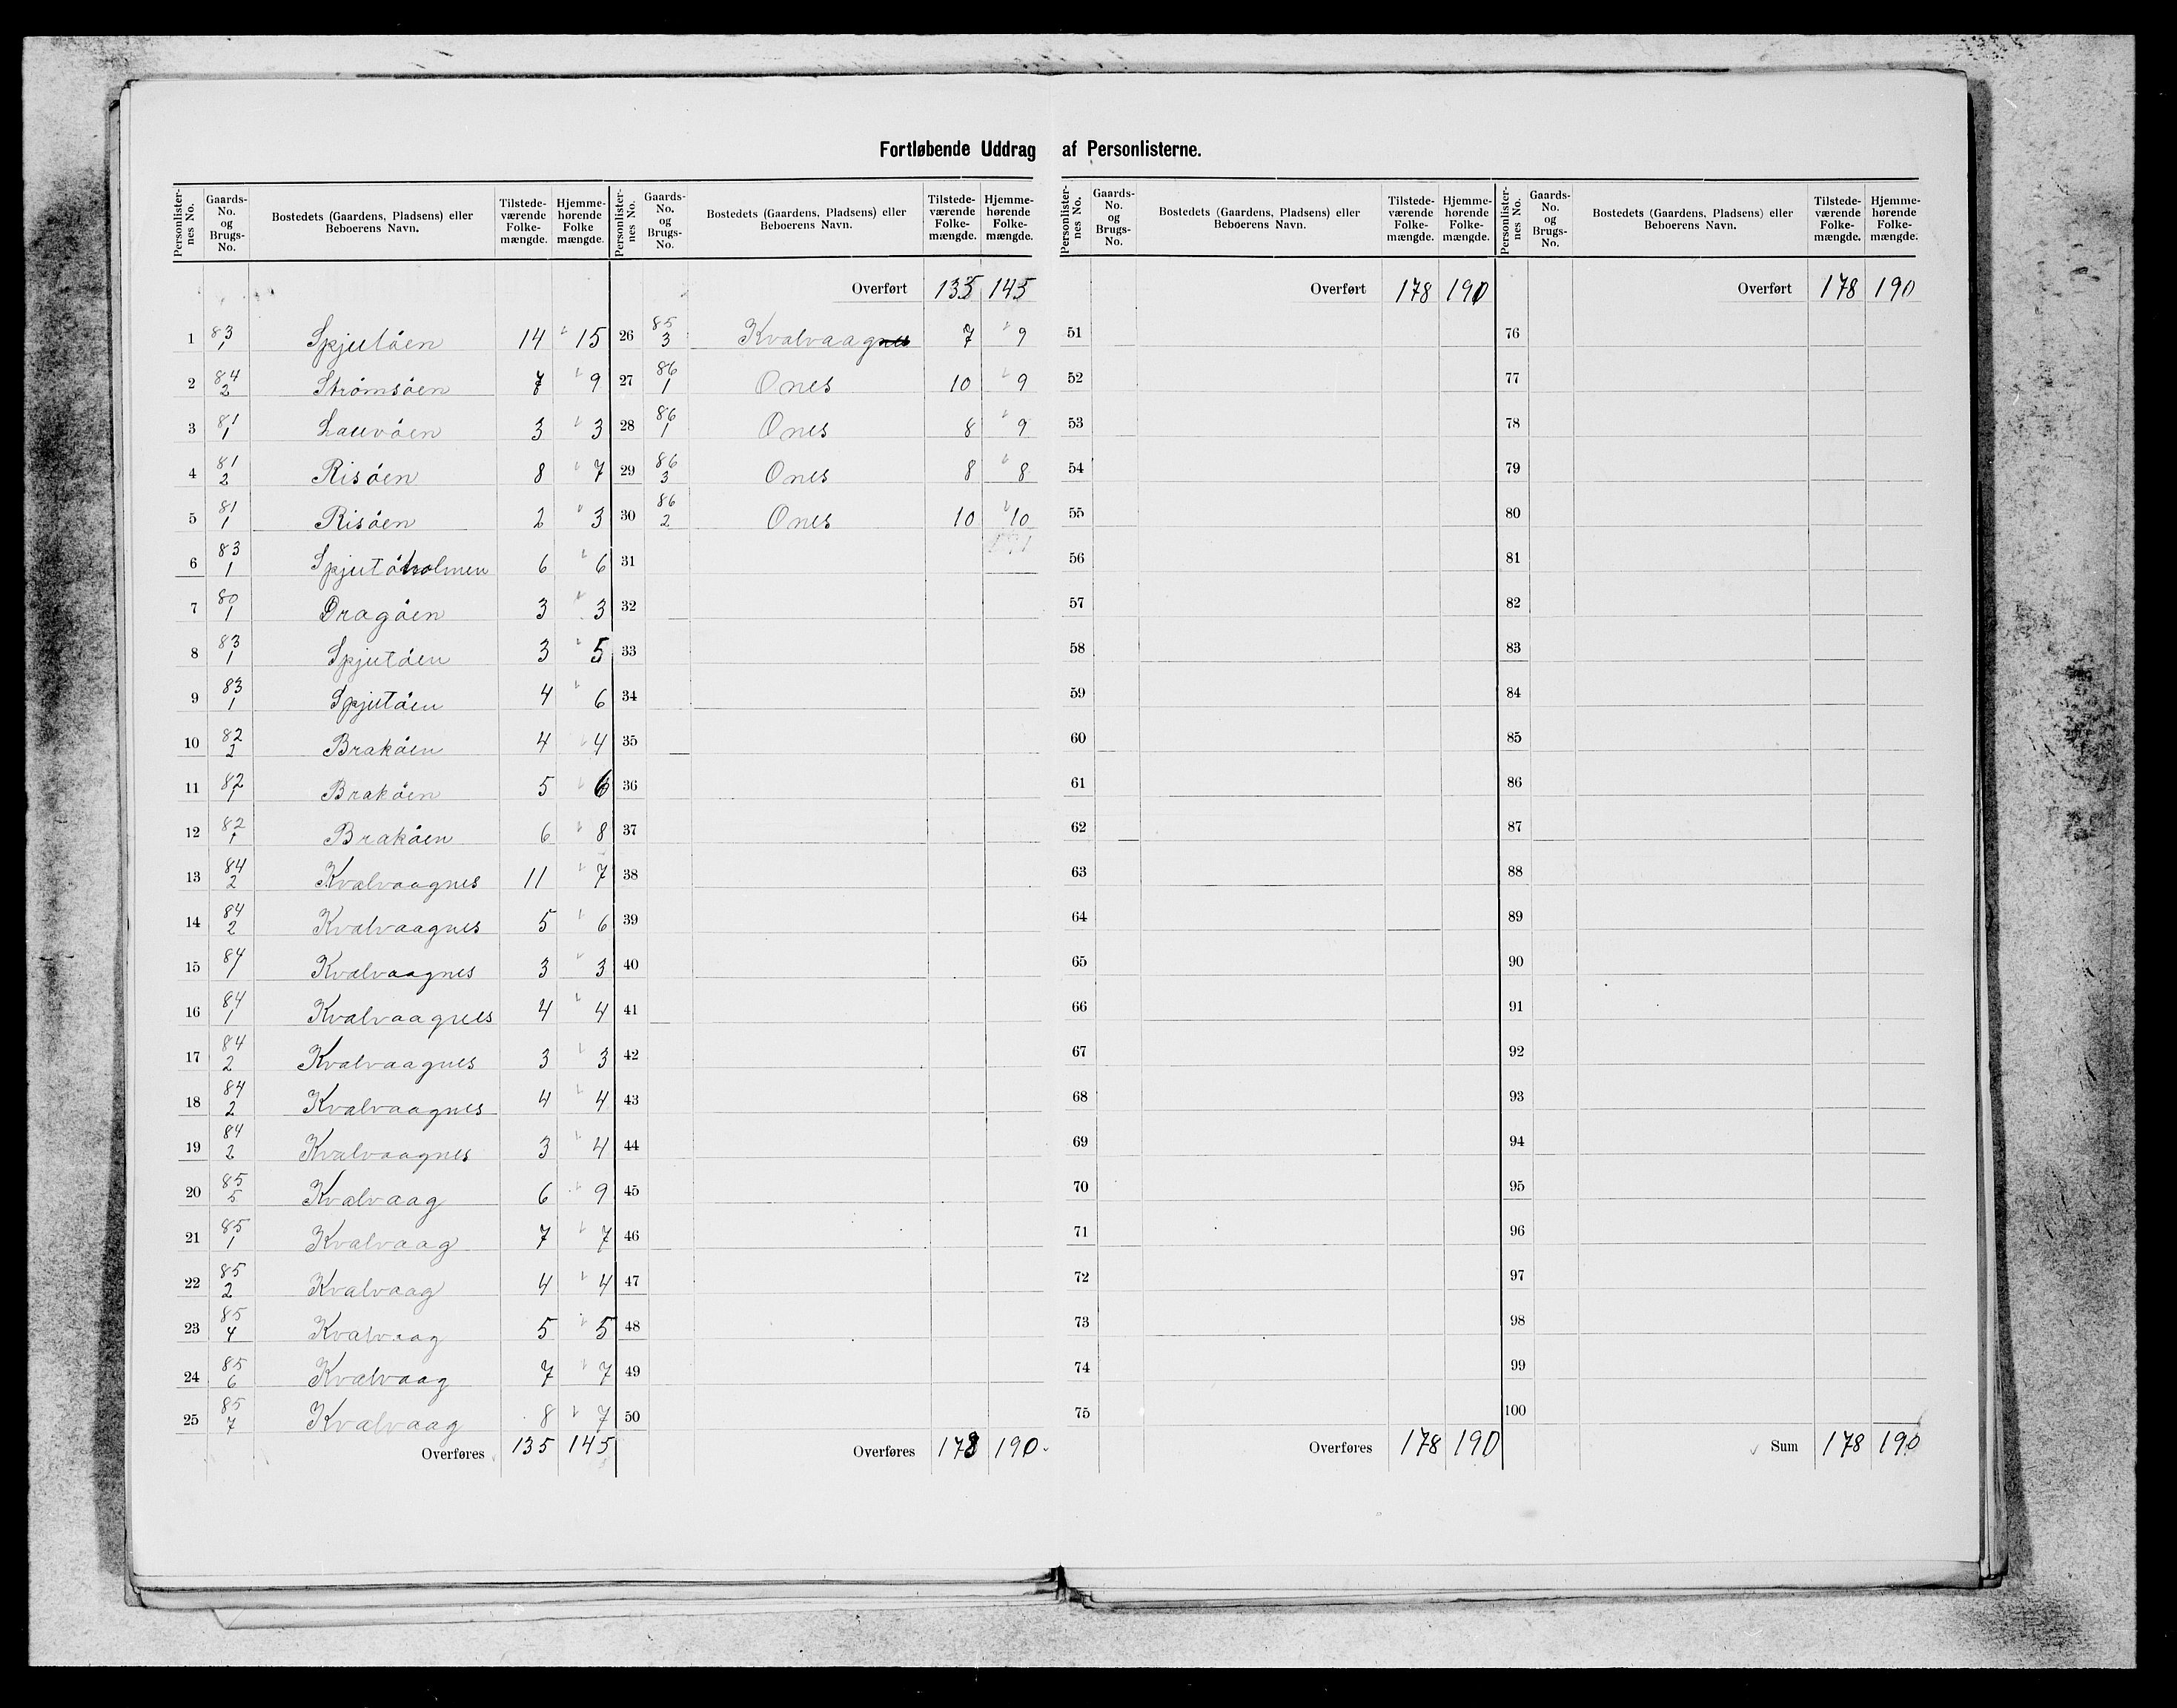 Fortløbende Uddrag af Personlisterne.
Personlister-nes No. | Gaards-No. og Brugs-No. | Bostedets (Gaardens, Pladsens) eller Beboerens Navn. | Tilstede-værende Folke-mængde. | Hjemme-hørende Folke mængde.
1 83/1 Spjutöen 14 15
2 84/2 Strømsöen 7 9
3 81/1 Lauvöen 3 3
4 81/2 Risöen 8 7
5 81/1 Risöen 2 3
6 83/1 Spjutöholmen 6 6
7 80/1 Dragöen 3 3
8 83/1 Spjutöen 3 5
9 83/1 Spjutöen 4 6
10 82/2 Braköen 4 4
11 82/1 Braköen 5 6
12 82/1 Braköen 6 8
13 84/2 Kvalvaagnes 11 7
14 84/2 Kvalvaagnes 5 6
15 84/1 Kvalvaagnes 3 3
16 84/1 Kvalvaagnes 4 4
17 84/2 Kvalvaagnes 3 3
18 84/2 Kvalvaagnes 4 4
19 84/2 Kvalvaagnes 3 4
20 85/5 Kvalvaag 6 9
21 85/1 Kvalvaag 7 7
22 85/2 Kvalvaag 4 4
23 85/4 Kvalvaag 5 5
24 85/6 Kvalvaag 7 7
25 85/7 Kvalvaag 8 7
Overføres 135 145
Personlister-nes No. | Gaards-No. og Brugs-No. | Bostedets (Gaardens, Pladsens) eller Beboerens Navn. | Tilstede-værende Folke-mængde. | Hjemme-hørende Folke-mængde.
Overført 135 145
26 85/3 Kvalvaagnes 7 9
27 86/1 Ones 10 9
28 86/1 Ones 8 9
29 86/3 Ones 8 8
30 86/2 Ones 10 10
31
32
33
34
35
36
37
38
39
40
41
42
43
44
45
46
47
48
49
50
Overføres 178 190
Personlister-nes No. | Gaards-No. og Brugs-No. | Bostedets (Gaardens, Pladsens) eller Beboerens Navn. | Tilstede-værende Folke-mængde. | Hjemme-hørende Folke-mængde.
Overført 178 190
51
52
53
54
55
56
57
58
59
60
61
62
63
64
65
66
67
68
69
70
71
72
73
74
75
Overføres 178 190
Personlister-nes No. | Gaards-No. og Brugs-No. | Bostedets (Gaardens, Pladsens) eller Beboerens Navn. | Tilstede-værende Folke-mængde. | Hjemme-hørende Folke-mængde.
Overført 178 190
76
77
78
79
80
81
82
83
84
85
86
87
88
89
90
91
92
93
94
95
96
97
98
99
100
Sum 178 190